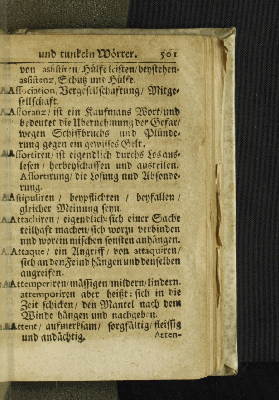 und tunckeln Wörter. 501
von assistiren/Hülfe leisten/beystehen
assistenz, Schutz und Hülfe.
Association, Vergesellschaftung/ Mitge-
sellschaft.
Assoranz/ ist ein Kaufmans Wort/und
bedeutet die Ubernehmung der Gefar/
wegen Schiffbruchs und Plünde-
rung gegen ein gewisses Gelt.
Assortiren/ist eigentlich durchs Los aus-
lesen/ herbeyschaffen und austeilen.
Assortirung/ die Losung und Absonde-
rung.
Astipuliren / beypflichten / beyfallen/
gleicher Meinung seyn.
Attachiren/ eigendlich sich einer Sache
teilhaft machen/ sich worzu verbinden
und worein mischen sonsten anhängen.
Attaque/ ein Angriff/ von attaquiren/
sich an den Feind hängen und denselben
angreifen.
Attemperiren/mässigen mildern/lindern.
attemporiren aber heißt: sich in die
Zeit schicken/ den Mantel nach dem
Winde hängen und nachgeben.
Attent/ aufmerksam/ sorgfältig/ fleissig
und andächtig.
Atten-